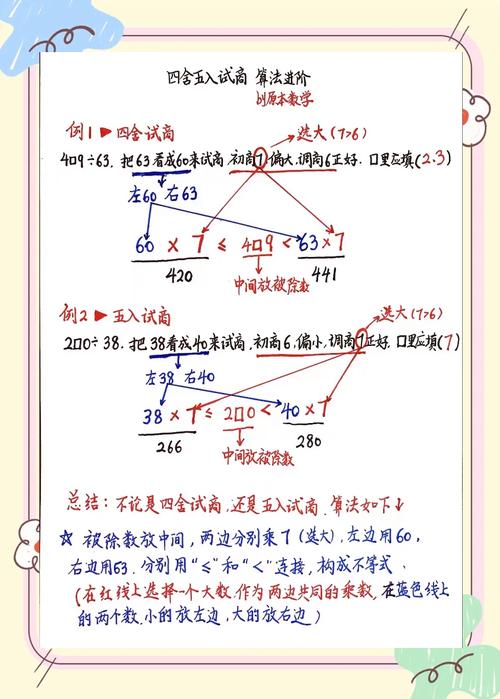 四舍五入试商 算法进阶
刘原本数学
例1▶四舍试商
选大(7>6)
4口9÷63，把63看成60来试商，初商7，偏大，调商6正好．口里应填(2.3)
左60 右63
60 × 7 ≤ 4口9 < 63×7
420 中间放被除数 441
例2▶五入试商
选大(7>6)
2口0÷38，把38看成40来试商，初商6，偏小，调商7正好．口里应填(7)
左38 右40
38 × 7 ≤ 2口0 < 40 × 7
266 中间放被除数 280
总结：不论是四舍试商，还是五入试商．算法如下↓
☆ 被除数放中间，两边分别乘7(选大)，左边用60，
右边用63．分别用“≤”和“<”连接，构成不等式．
(在红线上选择一个大数，作为两边共同的乘数，在蓝色线上
的两个数，小的放左边，大的放右边)